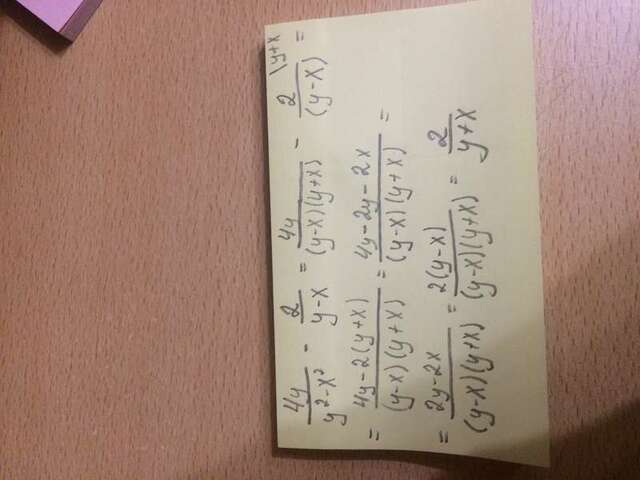 4y/(y²-x²) - 2/(y-x) = 4y/((y-x)(y+x)) - 2\y+x/(y-x) =
= (4y-2(y+x))/((y-x)(y+x)) = (4y-2y-2x)/((y-x)(y+x)) =
= (2y-2x)/((y-x)(y+x)) = 2(y-x)/((y-x)(y+x)) = 2/(y+x)